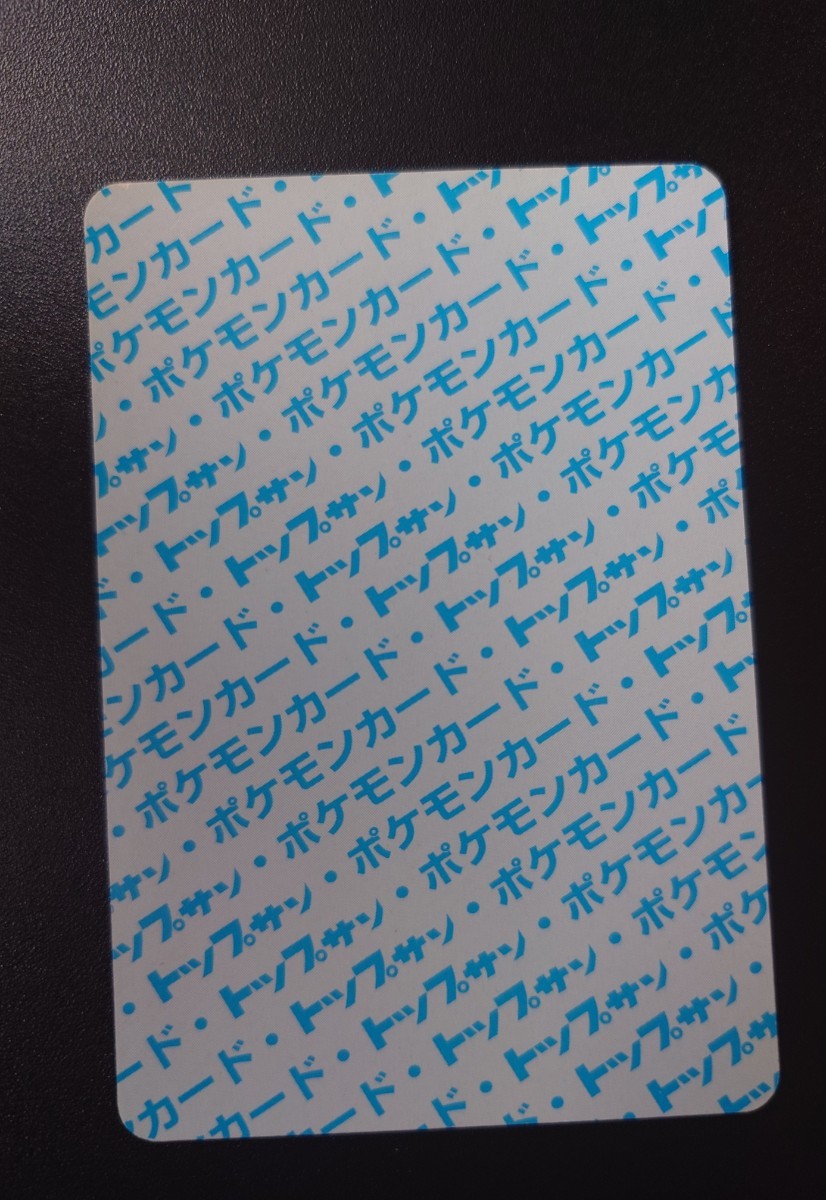 カード
モンカード・
ポケモンカード・ト
・ポケモンカード・トッ
・ポケモンカード・トップ
プサン・ポケモンカード・トップサ
トップサン・ポケモンカード・トッ
・トップサン・ポケモンカード・
ード・トップサン・ポケモンカード
ンカード・トップサン・ポケモンカ
ケモンカード・トップサン・ポケモ
・ポケモンカード・トップサン・ポ
サン・ポケモンカード・トップサン
ップサン・ポケモンカード・トップ
・トップサン・ポケモンカード・トッ
ード・トップサン・ポケモンカード・ト
カード・トップサン・ポケモンカード
カード・トップサン・ポケモンカー
ド・トップサン・ポケモン
ド・トップサン・ポケ
・トップサン・
トップサ